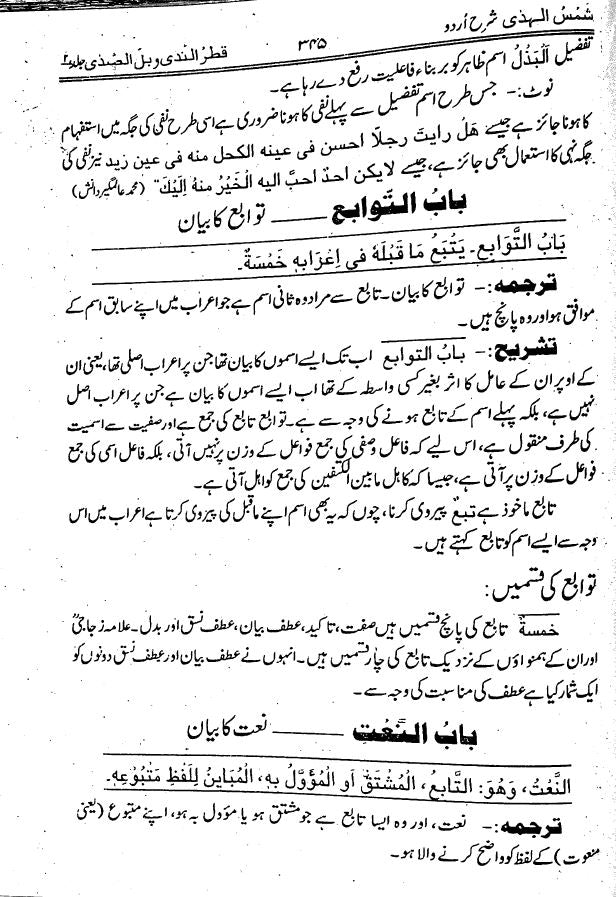 شمسُ الہدٰی شرح اُردو ۳۴۵ قطرُ الندی و بلّ الصّدٰی جلد
تفضیل اَلْبَذْلُ اسم ظاہر کو بر بناء فاعلیت رفع دے رہا ہے۔
نوٹ:۔ جس طرح اسم تفضیل سے پہلے نفی کا ہونا ضروری ہے اسی طرح نفی کی جگہ میں استفہام
کا ہونا جائز ہے جیسے هَلْ رایتَ رجلًا احسن فی عینه الکحل منه فی عین زید نیز نفی کی
جگہ نہی کا استعمال بھی جائز ہے، جیسے لایکن احدٌ احبَّ الیه الْخَیْرُ منهُ اِلَیْكَ" (محمد عالمگیر دانش)
بابُ التّوابع ــــــ توابع کا بیان
بَابُ التَّوَابِعِ۔ یَتْبَعُ مَا قَبْلَهٗ فی اِعْرَابِهٖ خَمْسَةٌ۔
ترجمہ:۔ توابع کا بیان۔ تابع سے مراد وہ ثانی اسم ہے جو اعراب میں اپنے سابق اسم کے
موافق ہو اور وہ پانچ ہیں۔
تشریح:۔ بابُ التوابع اب تک ایسے اسموں کا بیان تھا جن پر اعراب اصلی تھا، یعنی ان
کے اوپر ان کے عامل کا اثر بغیر کسی واسطہ کے تھا اب ایسے اسموں کا بیان ہے جن پر اعراب اصل
نہیں ہے، بلکہ پہلے اسم کے تابع ہونے کی وجہ سے ہے۔ توابع تابع کی جمع ہے اور صفیت سے اسمیت
کی طرف منقول ہے، اس لیے کہ فاعل وصفی کی جمع فواعل کے وزن پر نہیں آتی، بلکہ فاعل اسمی کی جمع
فواعل کے وزن پر آتی ہے، جیسا کہ کاہل ما بین الکتفین کی جمع کواہل آتی ہے۔
تابع ماخوذ ہے تبعَ پیروی کرنا، چوں کہ یہ بھی اسم اپنے ماقبل کی پیروی کرتا ہے اعراب میں اس
وجہ سے ایسے اسم کو تابع کہتے ہیں۔
توابع کی قسمیں:
خمسةٌ تابع کی پانچ قسمیں ہیں صفت، تاکید، عطف بیان، عطف نسق اور بدل۔ علامہ زجاجیؒ
اور ان کے ہمنواؤں کے نزدیک تابع کی چار قسمیں ہیں۔ انہوں نے عطف بیان اور عطف نسق دونوں کو
ایک شمار کیا ہے عطف کی مناسبت کی وجہ سے۔
بابُ النّعْت ــــــ نعت کا بیان
النَّعْتُ، وَهُوَ: التَّابِعُ، الْمُشْتَقُّ اَو الْمُؤَوَّلُ بِهٖ، الْمُبَایِنُ لِلَفْظِ مَتْبُوْعِهٖ۔
ترجمہ:۔ نعت، اور وہ ایسا تابع ہے جو مشتق ہو یا مؤول بہ ہو، اپنے متبوع (یعنی
منعوت) کے لفظ کو واضح کرنے والا ہو۔